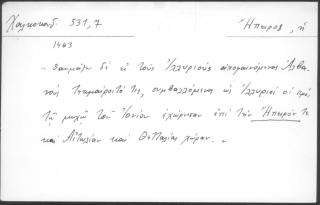 Χαλκοκονδ. 531,7 Ἤπειρος, ἡ
1463
" θαυμάζω δὲ εἰ τοὺς Ἰλλυριοὺς ἀποφαινόμενοι Ἀλβα-
νοὺς τεκμαίροιτό τις, συμβαλλόμενα ὡς Ἰλλυριοὶ οἱ πρὸς
τῷ μυχῷ τοῦ Ἰονίου ἐχώρησαν ἐπὶ τὴν Ἤπειρόν τε
καὶ Αἰτωλίαν καὶ Θετταλίας χώραν. "